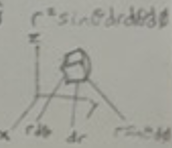 r²sinθdrdθdφ
z
y
x
rdθ
dr
rsinθdφ